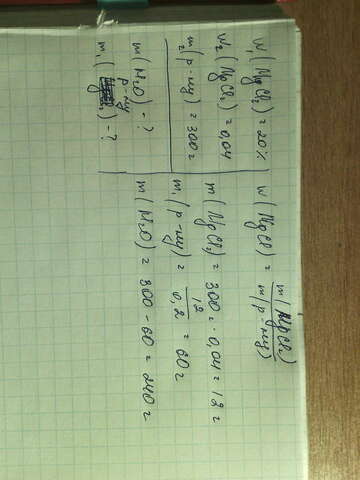 W₁ (MgCl₂) = 20%
W₂ (MgCl₂) = 0,04
m₂ (р-ну) = 300г
m (H₂O) - ?
m₁ (р-ну) - ?
W (MgCl) = m(MgCl₂) / m(р-ну)
m (MgCl₂) = 300г · 0,04 = 12г
m₁ (р-ну) = 12 / 0,2 = 60г
m (H₂O) = 300 - 60 = 240г